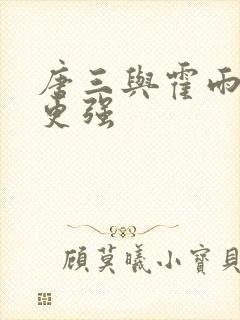 唐三與霍雨
更强
顧莫曦小寶貝